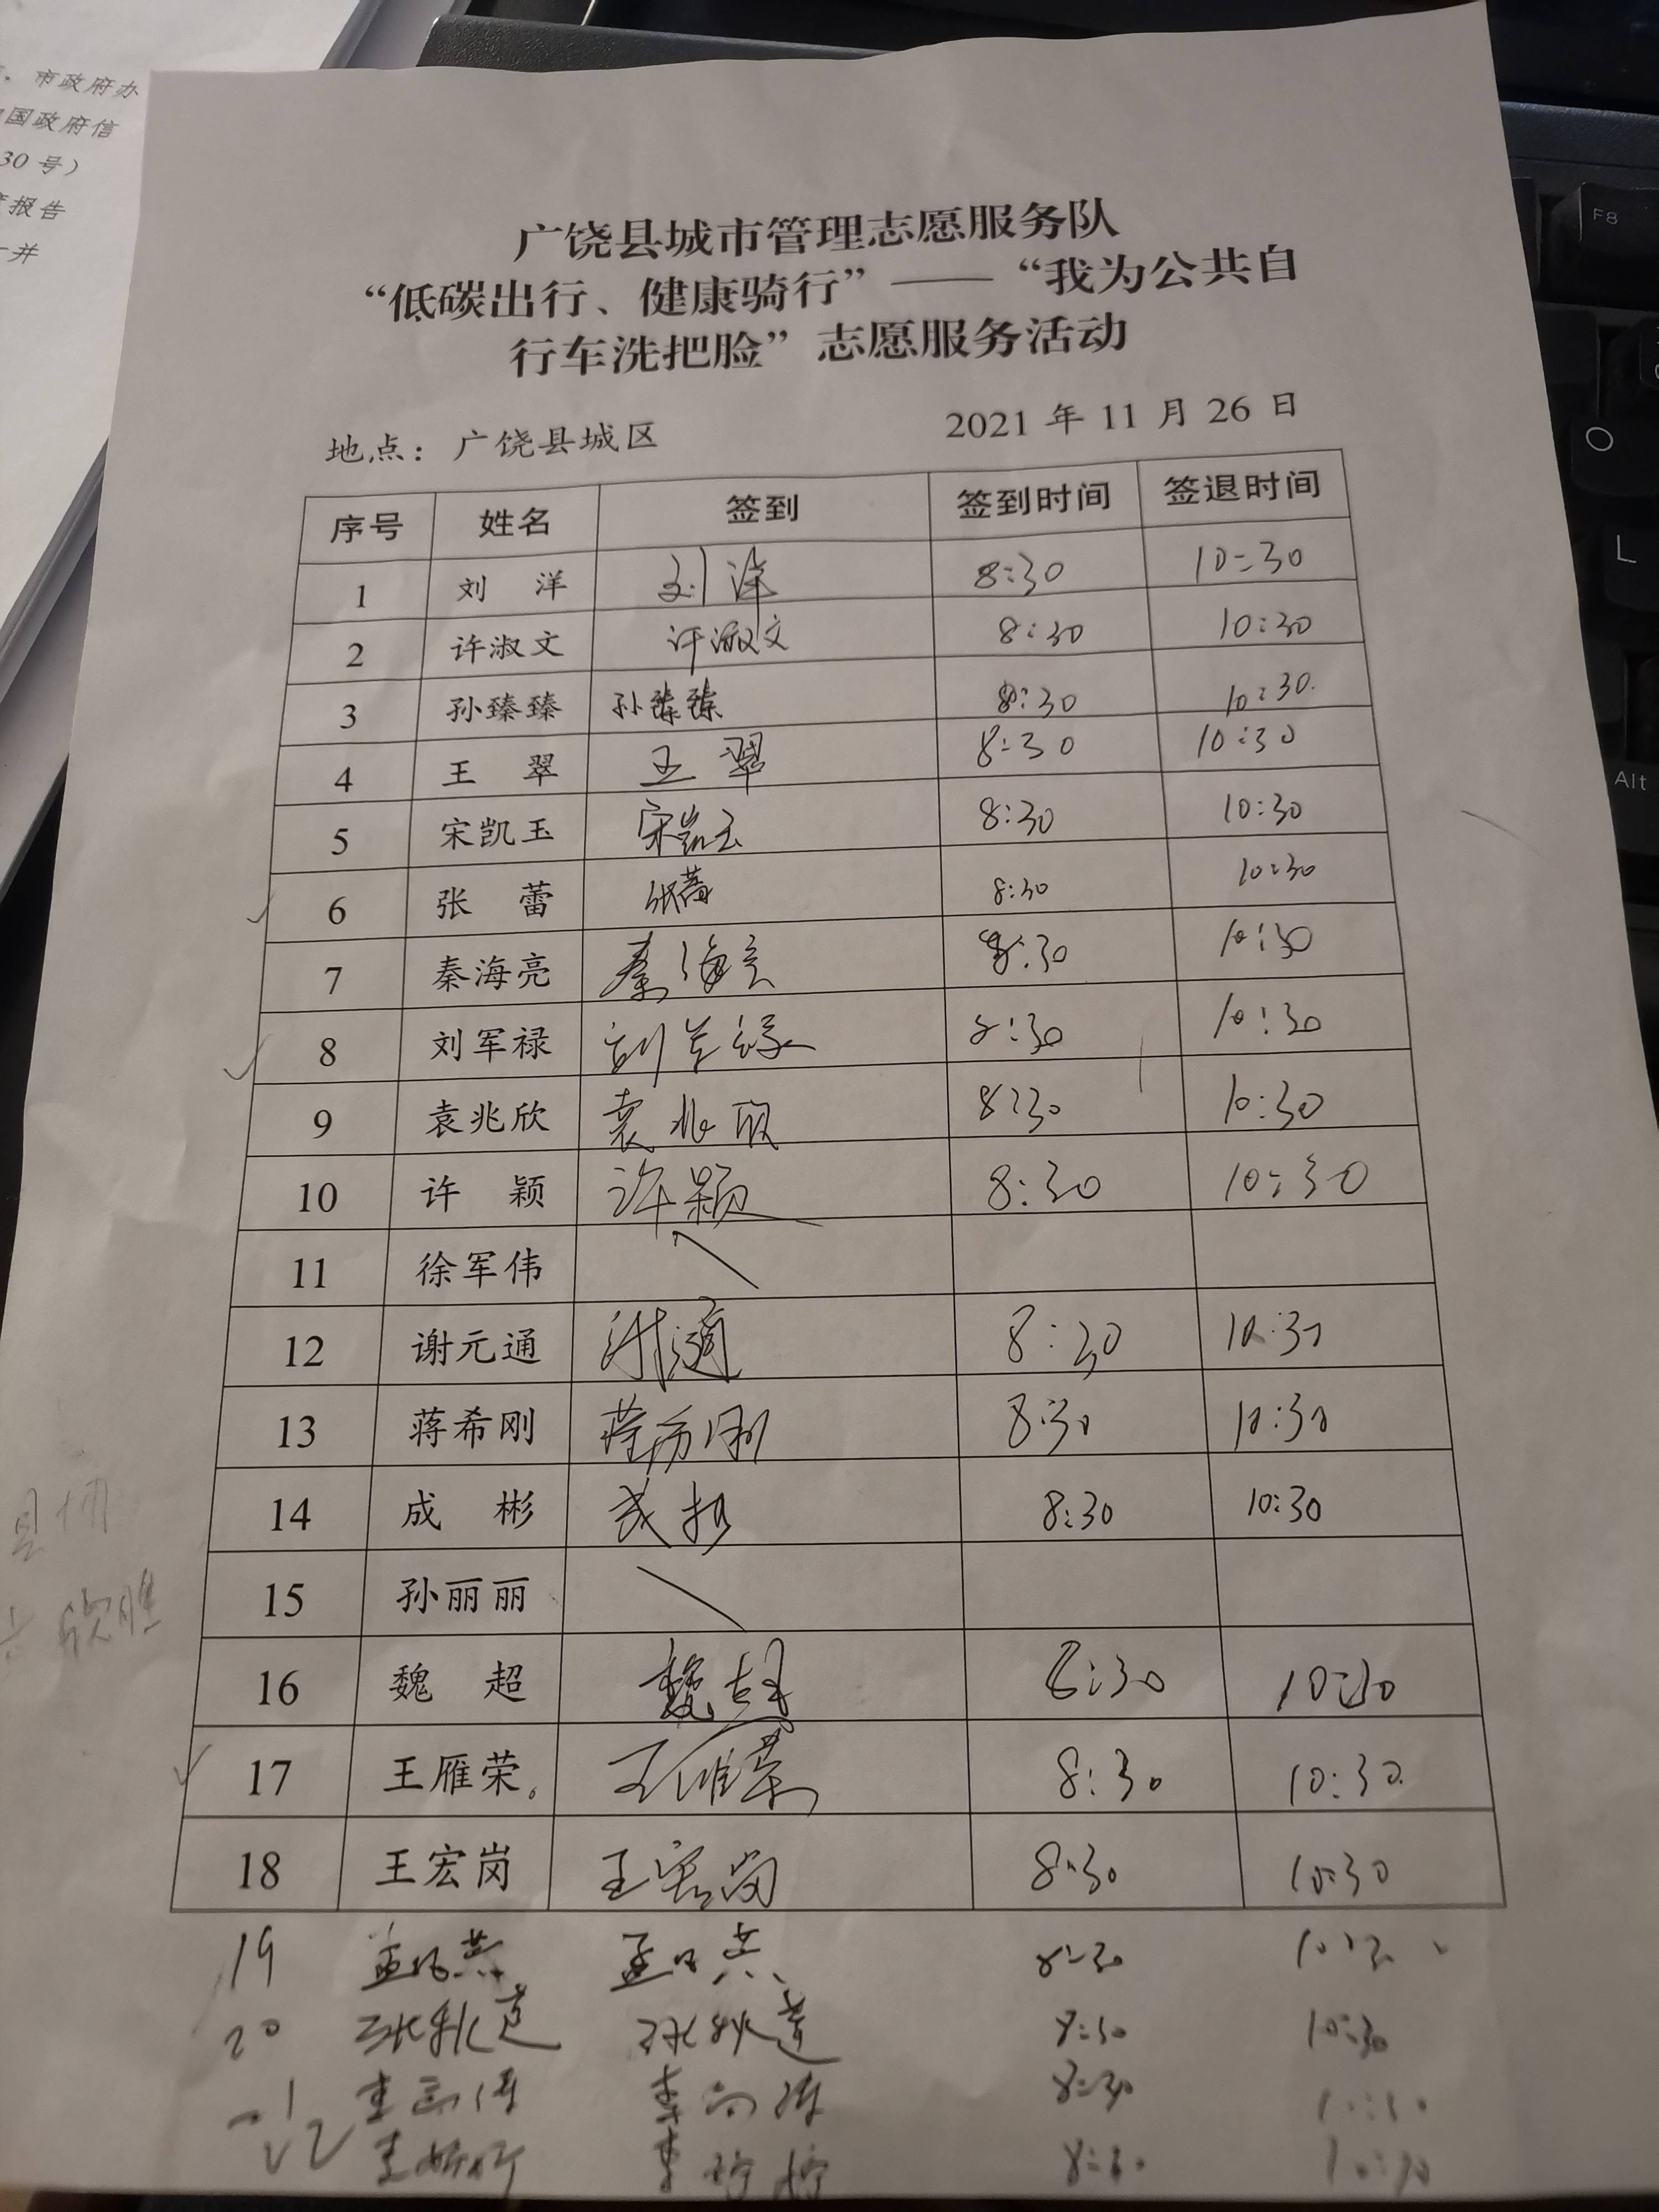 市政府办
国政府信
30号）
报告
并
广饶县城市管理志愿服务队
“低碳出行、健康骑行”——“我为公共自
行车洗把脸”志愿服务活动
地点：广饶县城区 2021年11月26日
序号 姓名 签到 签到时间 签退时间
1 刘洋 刘洋 8:30 10:30
2 许淑文 许淑文 8:30 10:30
3 孙臻臻 孙臻臻 8:30 10:30
4 王翠 王翠 8:30 10:30
5 宋凯玉 宋凯玉 8:30 10:30
6 张蕾 张蕾 8:30 10:30
7 秦海亮 秦海亮 8:30 10:30
8 刘军禄 刘军禄 8:30 10:30
9 袁兆欣 袁兆欣 8:30 10:30
10 许颖 许颖 8:30 10:30
11 徐军伟
12 谢元通 谢元通 8:30 10:30
13 蒋希刚 蒋希刚 8:30 10:30
14 成彬 成彬 8:30 10:30
15 孙丽丽
16 魏超 魏超 8:30 10:30
17 王雁荣。 王雁荣 8:30 10:30
18 王宏岗 王宏岗 8:30 10:30
19 8:30 10:30
20 8:30 10:30
21 8:30 10:30
22 8:30 10:30
F8
O
L
Alt